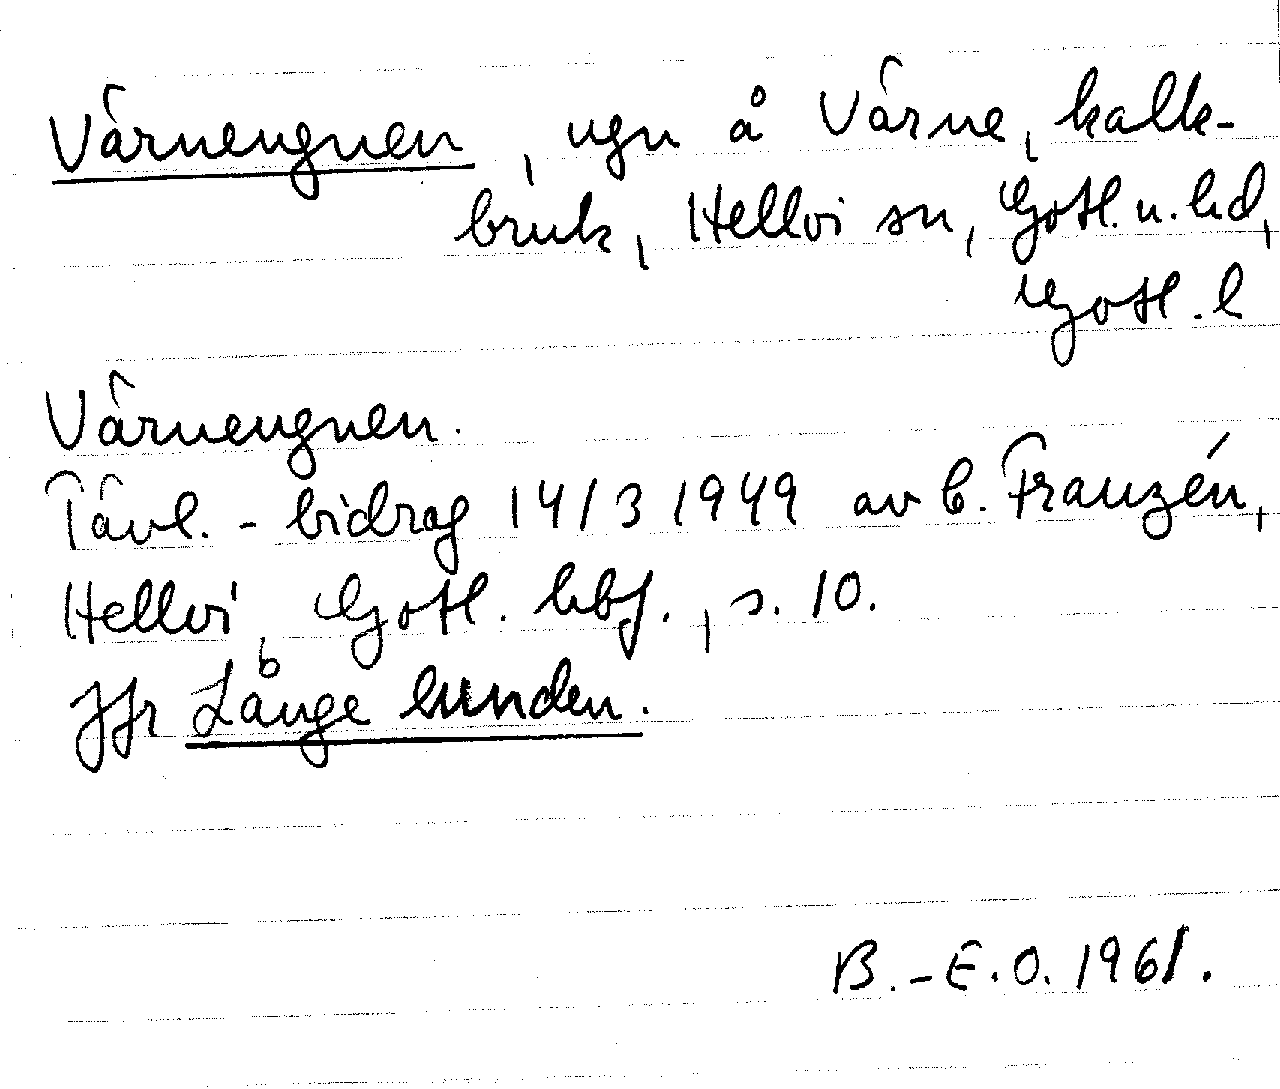 Värneugnen, ugn å Värne, kalk-
bruk, Hellvi sn, Gotl. n. hd,
Gotl. l
Värneugnen.
Tävl.-bidrag 14/3 1949 av B. Franzén,
Hellvi, Gotl. hbf., s. 10.
Jfr Långe lunden.
B.-E.O. 1961.